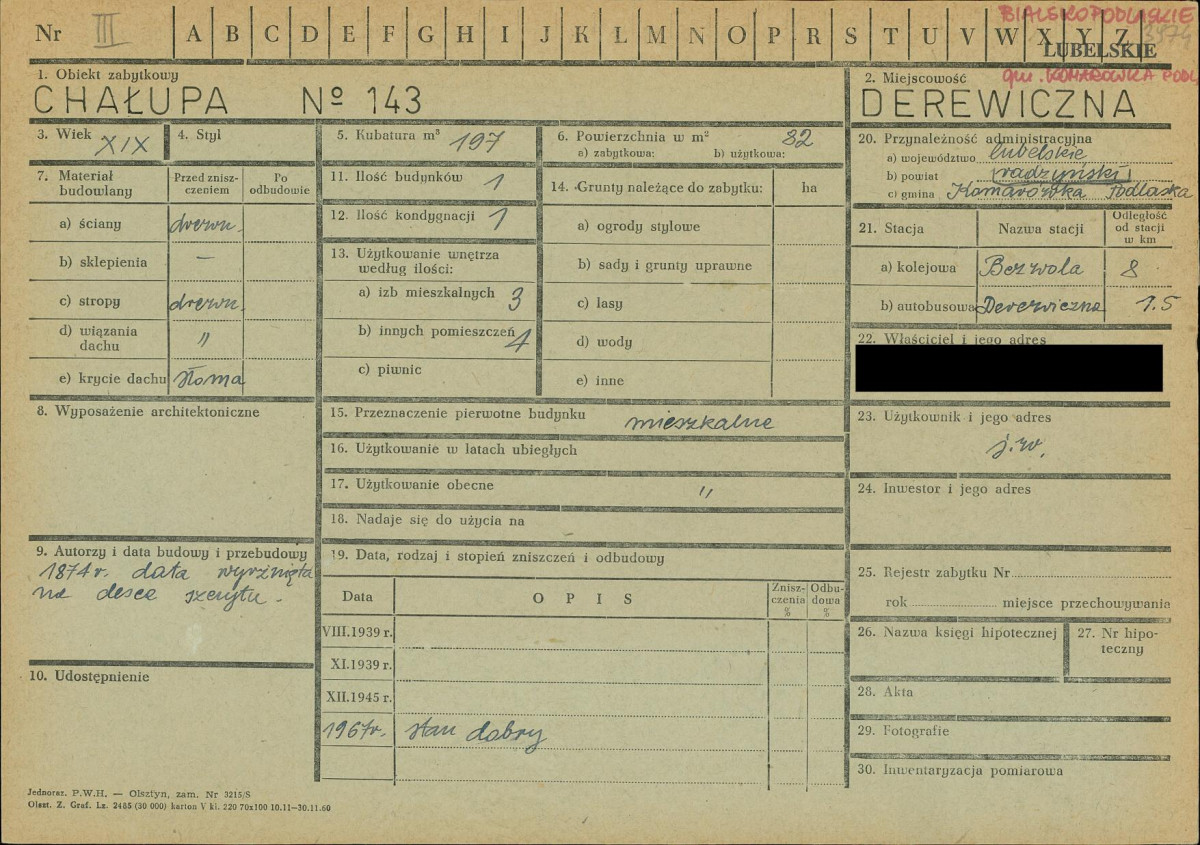 Nr III A B C D E F G H I J K L M N O P R S T U V W X Y Z
BIALSKOPODLASKIE
LUBELSKIE
gm. KOMARÓWKA PODL.
1. Obiekt zabytkowy
CHAŁUPA Nº 143
2. Miejscowość
DEREWICZNA
3. Wiek XIX
4. Styl
5. Kubatura m³ 197
6. Powierzchnia w m² 82
a) zabytkowa: b) użytkowa:
7. Materiał budowlany
Przed znisz-
czeniem
Po
odbudowie
a) ściany drewn.
b) sklepienia —
c) stropy drewn.
d) wiązania
dachu "
e) krycie dachu słoma
8. Wyposażenie architektoniczne
9. Autorzy i data budowy i przebudowy
1874 r. data wyrżnięta
na desce szczytu.
10. Udostępnienie
11. Ilość budynków 1
12. Ilość kondygnacji 1
13. Użytkowanie wnętrza
według ilości:
a) izb mieszkalnych 3
b) innych pomieszczeń 4
c) piwnic
14. Grunty należące do zabytku: ha
a) ogrody stylowe
b) sady i grunty uprawne
c) lasy
d) wody
e) inne
15. Przeznaczenie pierwotne budynku mieszkalne
16. Użytkowanie w latach ubiegłych
17. Użytkowanie obecne "
18. Nadaje się do użycia na
19. Data, rodzaj i stopień zniszczeń i odbudowy
Data O P I S
Znisz-
czenia
%
Odbu-
dowa
%
VIII.1939 r.
XI.1939 r.
XII.1945 r.
1967r. stan dobry
20. Przynależność administracyjna
a) województwo lubelskie
b) powiat radzyński
c) gmina Komarówka Podlaska
21. Stacja Nazwa stacji
Odległość
od stacji
w km
a) kolejowa Bezwola 8
b) autobusowa Derewiczna 1.5
22. Właściciel i jego adres
23. Użytkownik i jego adres
j.w.
24. Inwestor i jego adres
25. Rejestr zabytku Nr
rok miejsce przechowywania
26. Nazwa księgi hipotecznej
27. Nr hipo-
teczny
28. Akta
29. Fotografie
30. Inwentaryzacja pomiarowa
Jednoraz. P.W.H. — Olsztyn, zam. Nr 3215/S
Olszt. Z. Graf. Lz. 2485 (30 000) karton V kl. 220 70x100 10.11—30.11.60